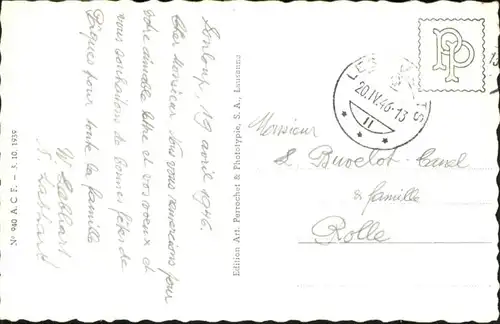 Sonloup, 19 avril 1946.
Cher Monsieur Nous vous remercions pour
votre aimable lettre et vos voeux et
vous souhaitons de bonnes fêtes de
Pâques pour toute la famille
W Gebhart
N° 490 A. C. F. 3. 10. 1939
Edition Art. Perrochet & Phototypie, S. A., Lausanne
20.IV.46-13
11
PP
Monsieur
L Buvelot-
& famille
Rolle